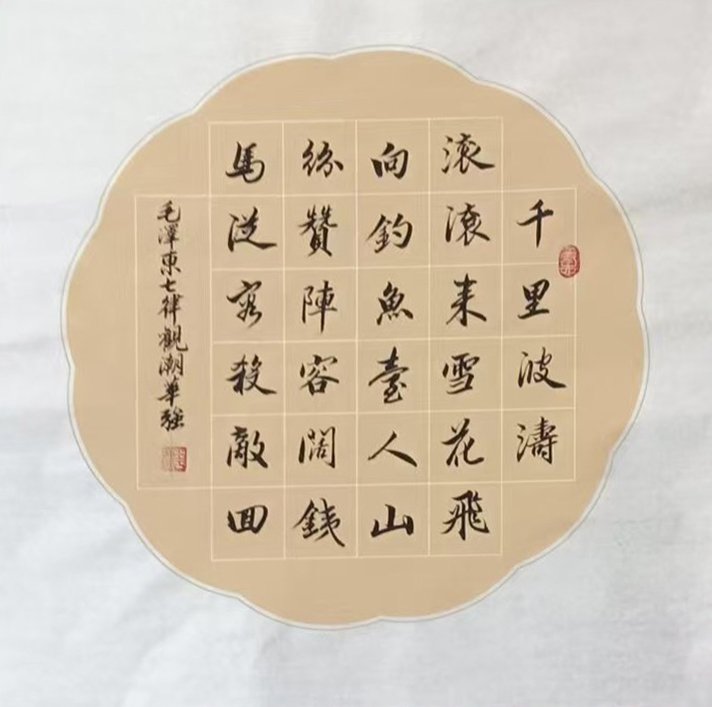 千里波濤
滾滾来雪花飛
向釣魚臺人山
紛贊陣容闊鉄
馬從容殺敵回
毛澤東七律觀潮華強